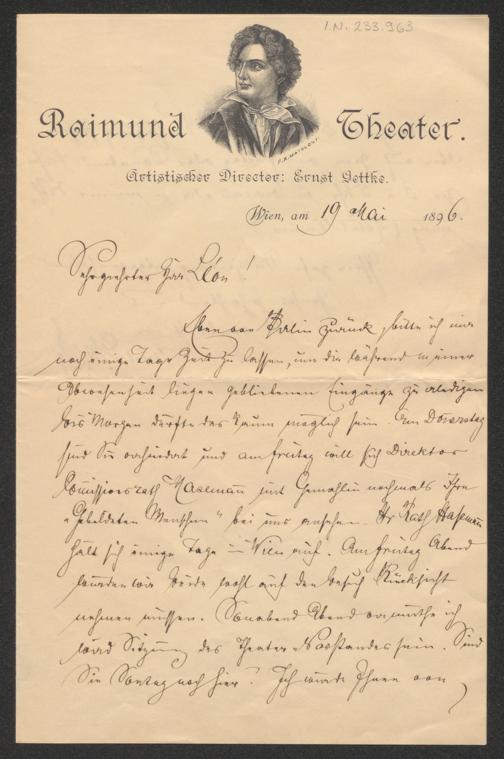 I.N. 233.963
Raimund Theater.
Artistischer Director: Ernst Gettke.
Wien, am 19 Mai 1896.
Sehrgeehrter Herr Léon!
Eben von Berlin zurück, bitte ich mir
noch einige Tage Zeit zu lassen, um die während meiner
Abwesenheit liegen gebliebenen Eingänge zu erledigen
bis Morgen dürfte das kaum möglich sein. Am Donerstag
sind Sie verhindert und am freitag will sich Direktor
Comissionsrath Hasemann mit Gemahlin nochmals Ihre
„Gebildeten Menschen" bei uns ansehen. Hr Rath Hasemann
hält sich einige Tage in Wien auf. Am freitag Abend
würden wir beide wohl auf den besuch Rücksicht
nehmen müssen. Sonabend Abend vermuthe ich
wird Sitzung des Theater Vorstandes sein. Sind
Sie Sontag noch hier? Ich würde Ihnen von